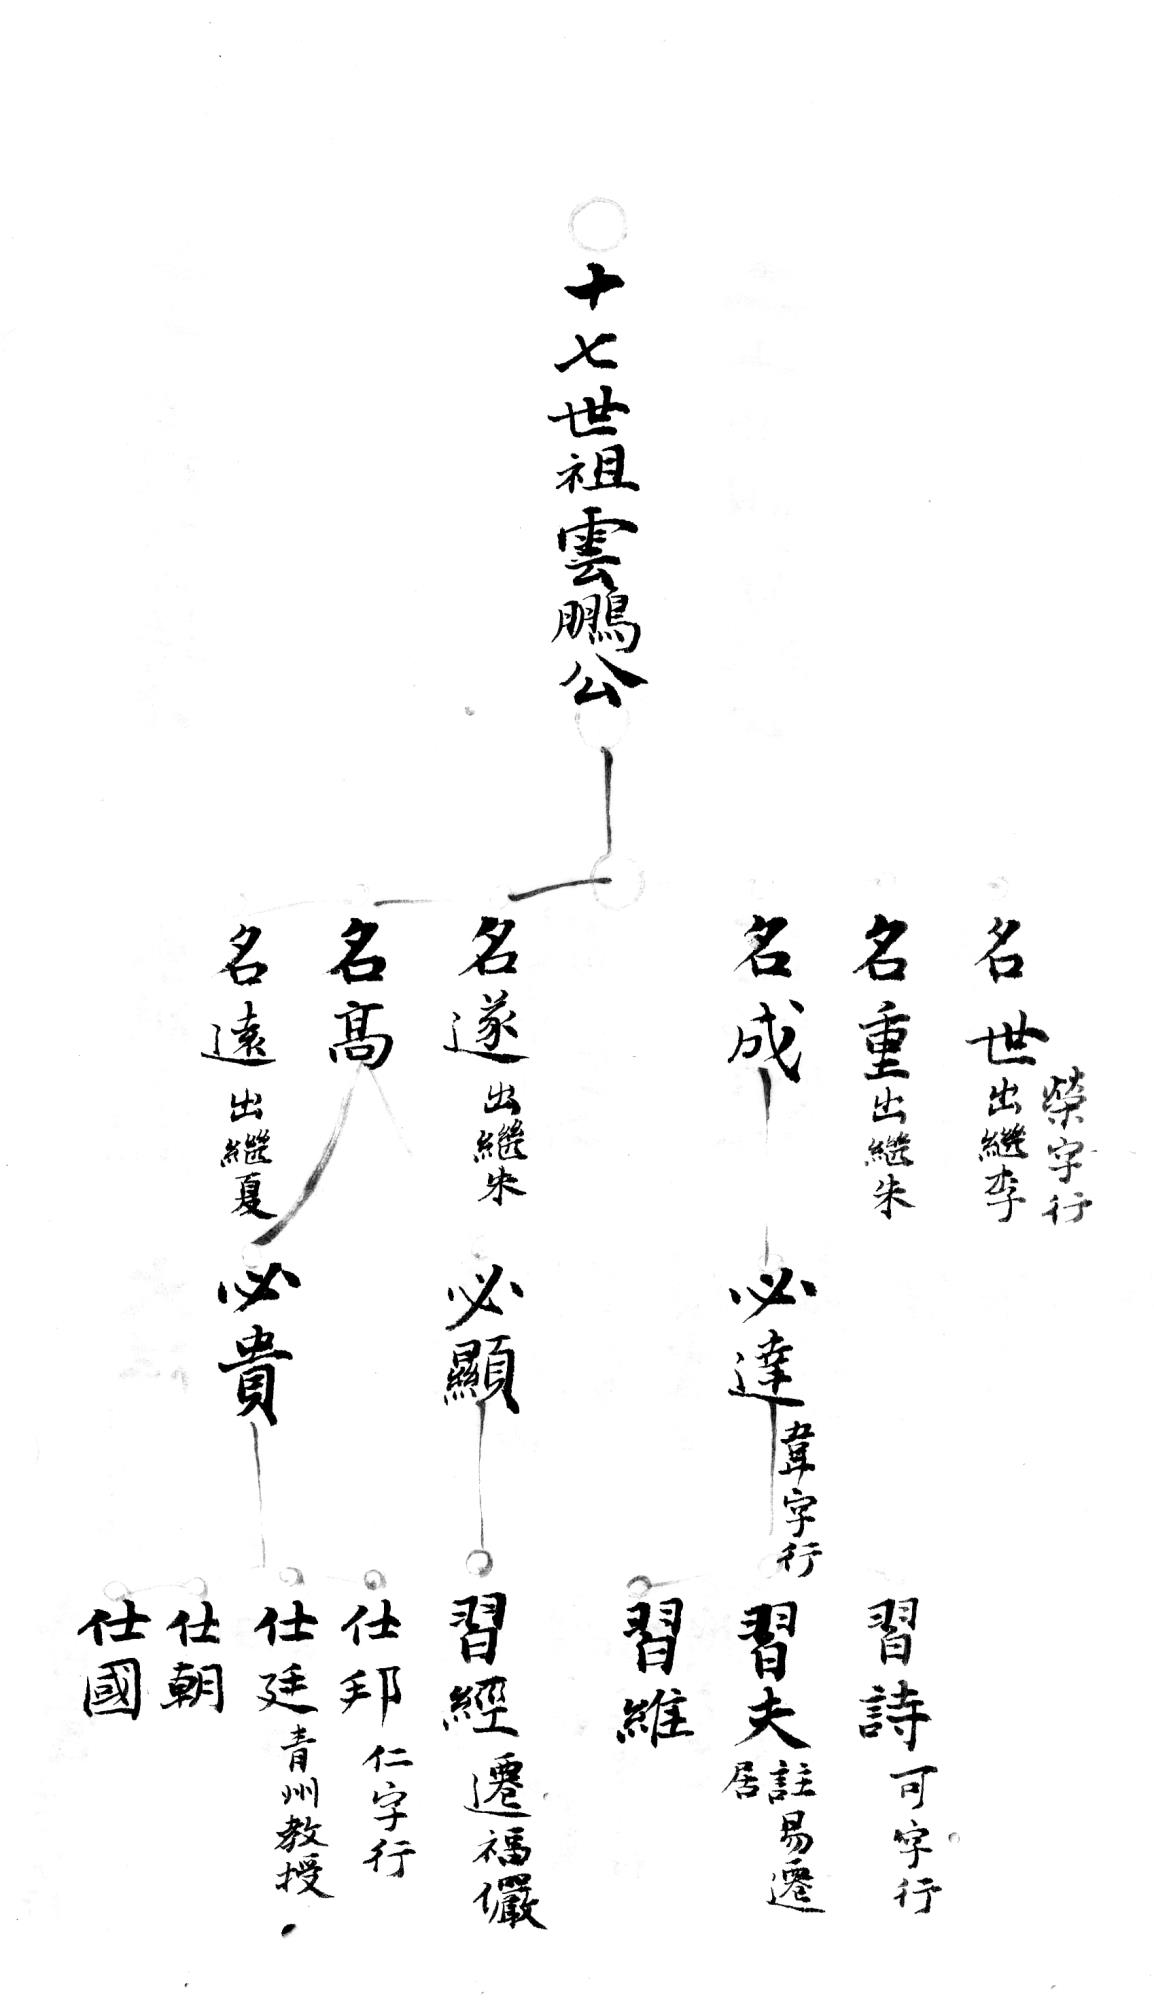 十七世祖雲鵬公
名世出繼李
榮字行
名重出繼朱
名成
名遂出繼朱
名高
名遠出繼夏
必達
韋字行
必顯
必貴
習詩可字行
習夫註易遷
居
習維
習經遷福儼
仕邦仁字行
仕廷青州教授
仕朝
仕國